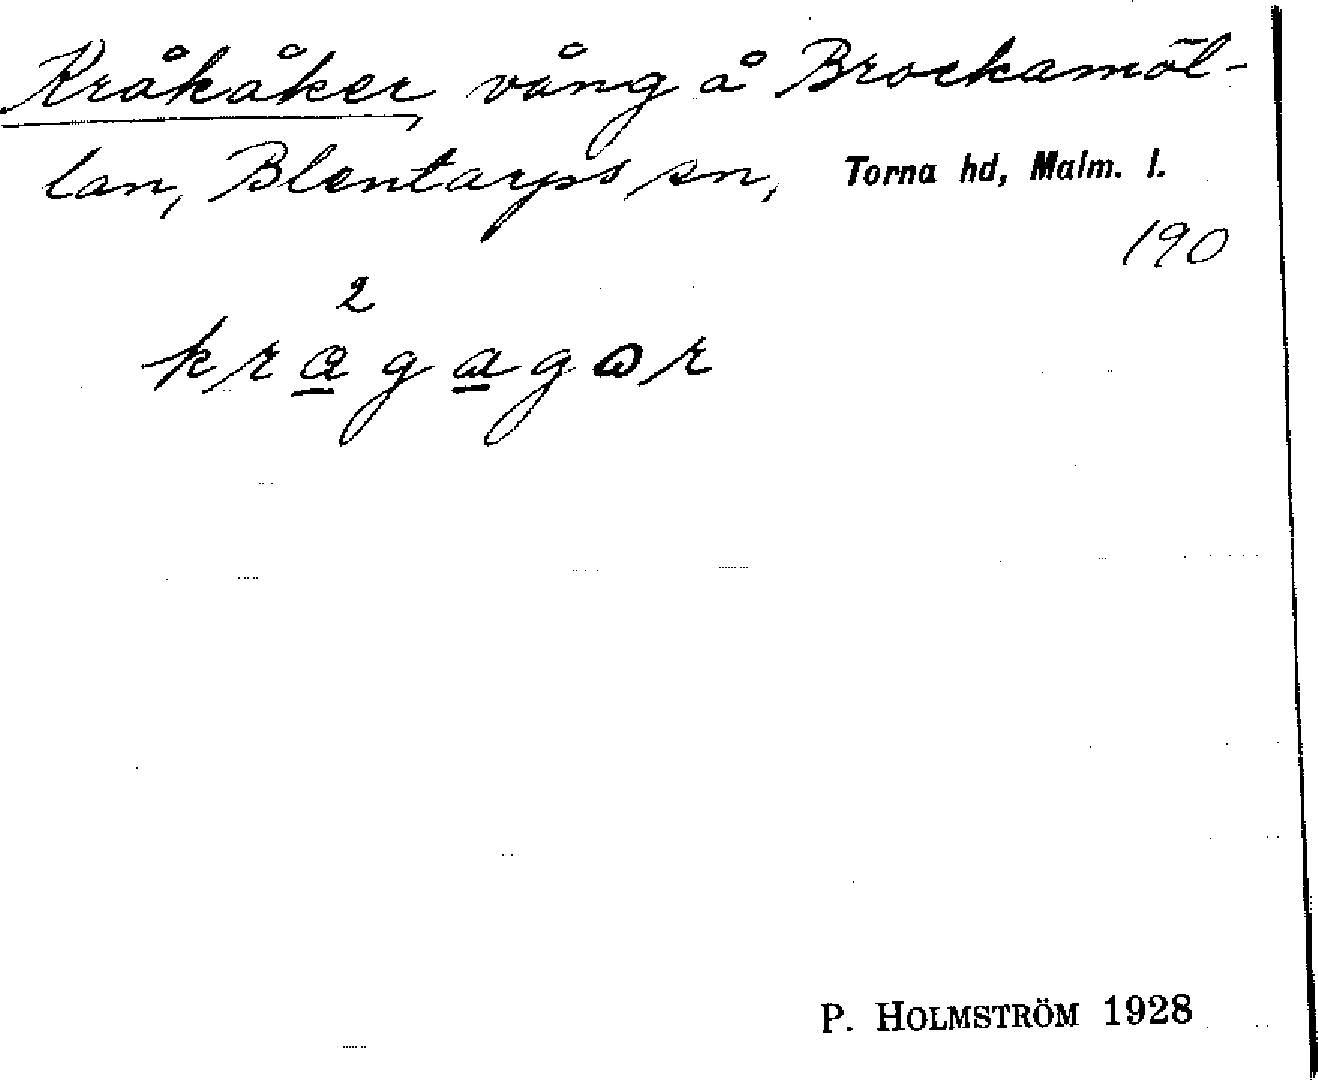 Kråkåker, vång å Brockamöl-
lan, Blentarps sn, Torna hd, Malm. l.
190
2
kragagər
P. HOLMSTRÖM 1928